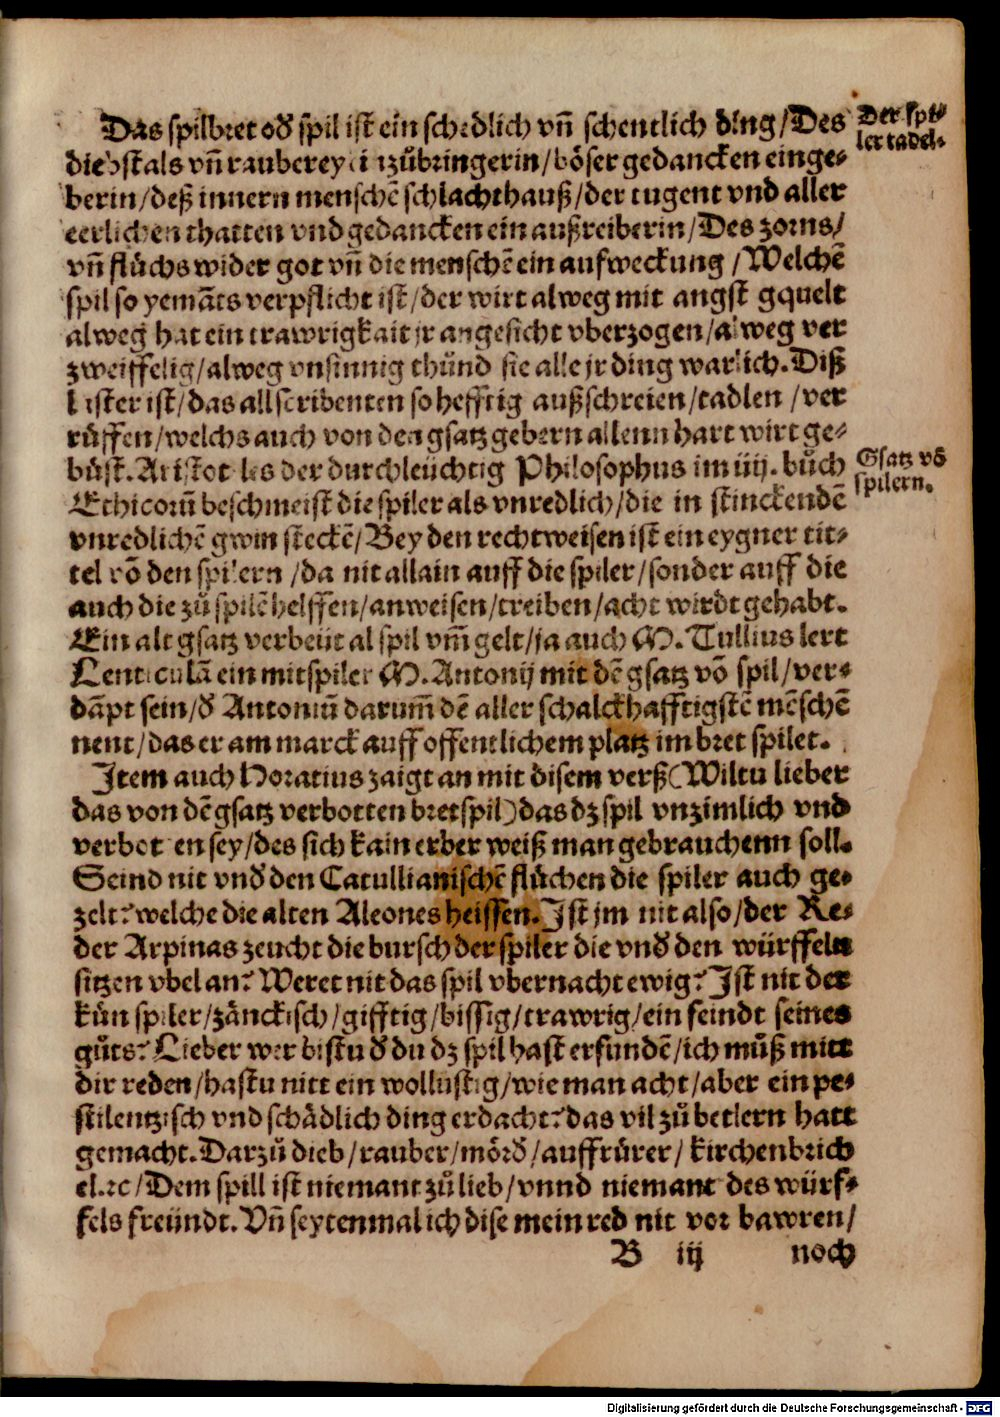 Das spilbret oď spil ist ein schedlich vñ schentlich ding/Des
diebstals vñ rauberey ein zůbringerin/böser gedancken einge-
berin/deß innern menschē schlachthauß/der tugent vnd aller
eerlichen thatten vnd gedancken ein außreiberin/Des zorns/
vñ flůchs wider got vñ die menschē ein aufweckung/Welchē
spil so yemāts verpflicht ist/der wirt alweg mit angst gquelt
alweg hat ein trawrigkait jr angesicht vberzogen/alweg ver
zweiffelig/alweg vnsinnig thůnd sie alle jr ding warlich. Diß
laster ist/das all scribenten so hefftig außschreien/tadlen/ver
růffen/welchs auch von den gsatzgebern allenn hart wirt ge-
bůst. Aristoteles der durchleüchtig Philosophus im iiij. bůch
Ethicorū beschmeist die spiler als vnredlich/die in stinckendē
vnredlichē gwin steckē/Bey den rechtweisen ist ein eygner tit-
tel vō den spilern/da nit allain auff die spiler/sonder auff die
auch die zů spilē helffen/anweisen/treiben/acht wirdt gehabt.
Ein alt gsatz verbeüt al spil vm̄ gelt/ja auch M. Tullius lert
Lenticulā ein mitspiler M. Antonij mit dē gsatz vō spil/ver-
dāpt sein/ď Antoniū darum̄ dē aller schalckhafftigstē mēschē
nent/das er am marck auff offentlichem platz im bret spilet.
Item auch Horatius zaigt an mit disem verß (Wiltu lieber
das von dē gsatz verbotten bretspil) das dz spil vnzimlich vnd
verbotten sey/des sich kain erber weiß man gebrauchenn soll.
Seind nit vnď den Catullianischē flüchen die spiler auch ge-
zelt? welche die alten Aleones heissen. Ist jm nit also/der Re-
der Arpinas zeucht die bursch der spiler die vnď den würffeln
sitzen vbel an? Weret nit das spil vbernacht ewig? Ist nit der
kün spiler/zänckisch/gifftig/bissig/trawrig/ein feindt seines
gůts? Lieber wer bistu ď du dz spil hast erfundē/ich můß mitt
dir reden/hastu nitt ein wollustig/wie man acht/aber ein pe-
stilentzisch vnd schädlich ding erdacht? das vil zů betlern hatt
gemacht. Darzů dieb/rauber/mörď/auffrürer/kirchenbrich
el. ꝛc/Dem spill ist niemant zů lieb/vnnd niemant des würf-
fels freündt. Vñ seytenmal ich dise mein red nit vor bawren/
B iij noch
Der spi-
ler tadel.
Gsatz vō
spilern.
Digitalisierung gefördert durch die Deutsche Forschungsgemeinschaft - DFG